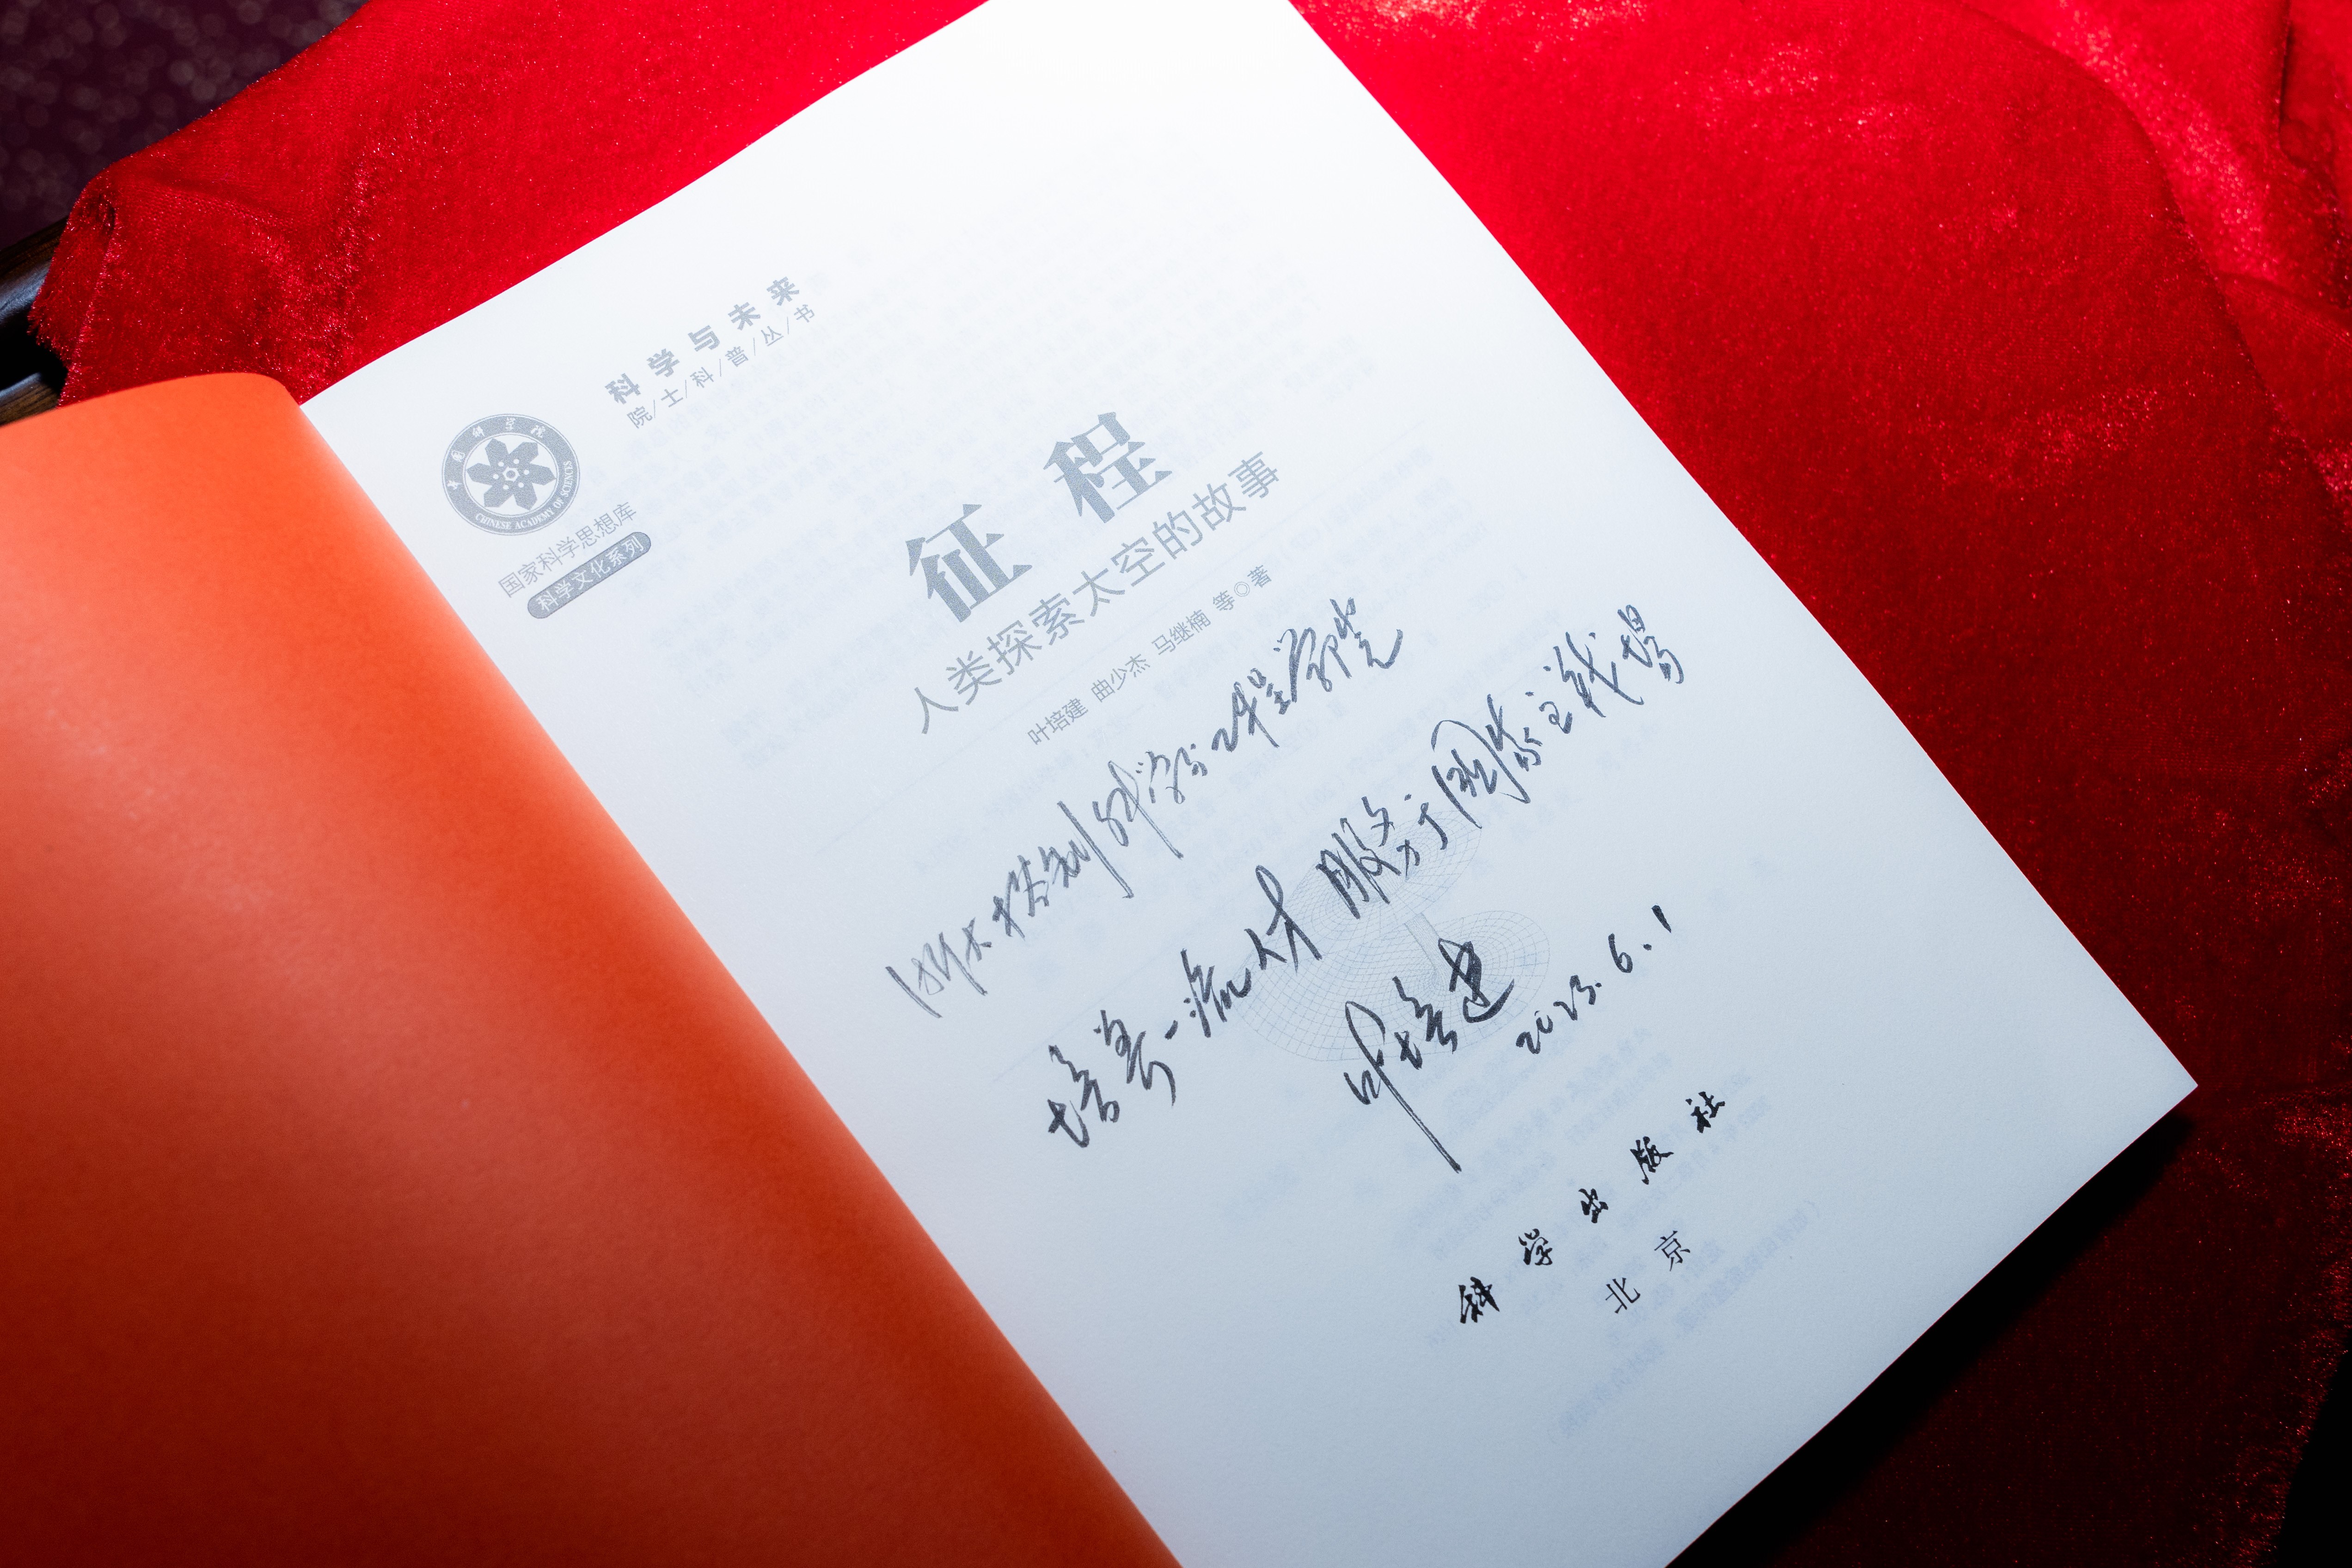 科学与未来
院/士/科/普/丛/书
中国科学院
CHINESE ACADEMY OF SCIENCES
国家科学思想库
科学文化系列
征程
人类探索太空的故事
叶培建 曲少杰 马继楠 等◎著
科学与工程
培养一流人才 服务于国家主戰場
叶培建
2023.6.1
科学出版社
北京